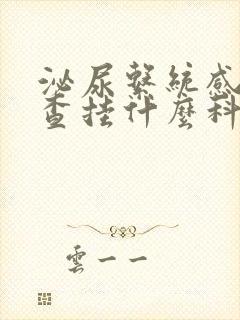 泌尿繫統感
查挂什麼科
雲一一